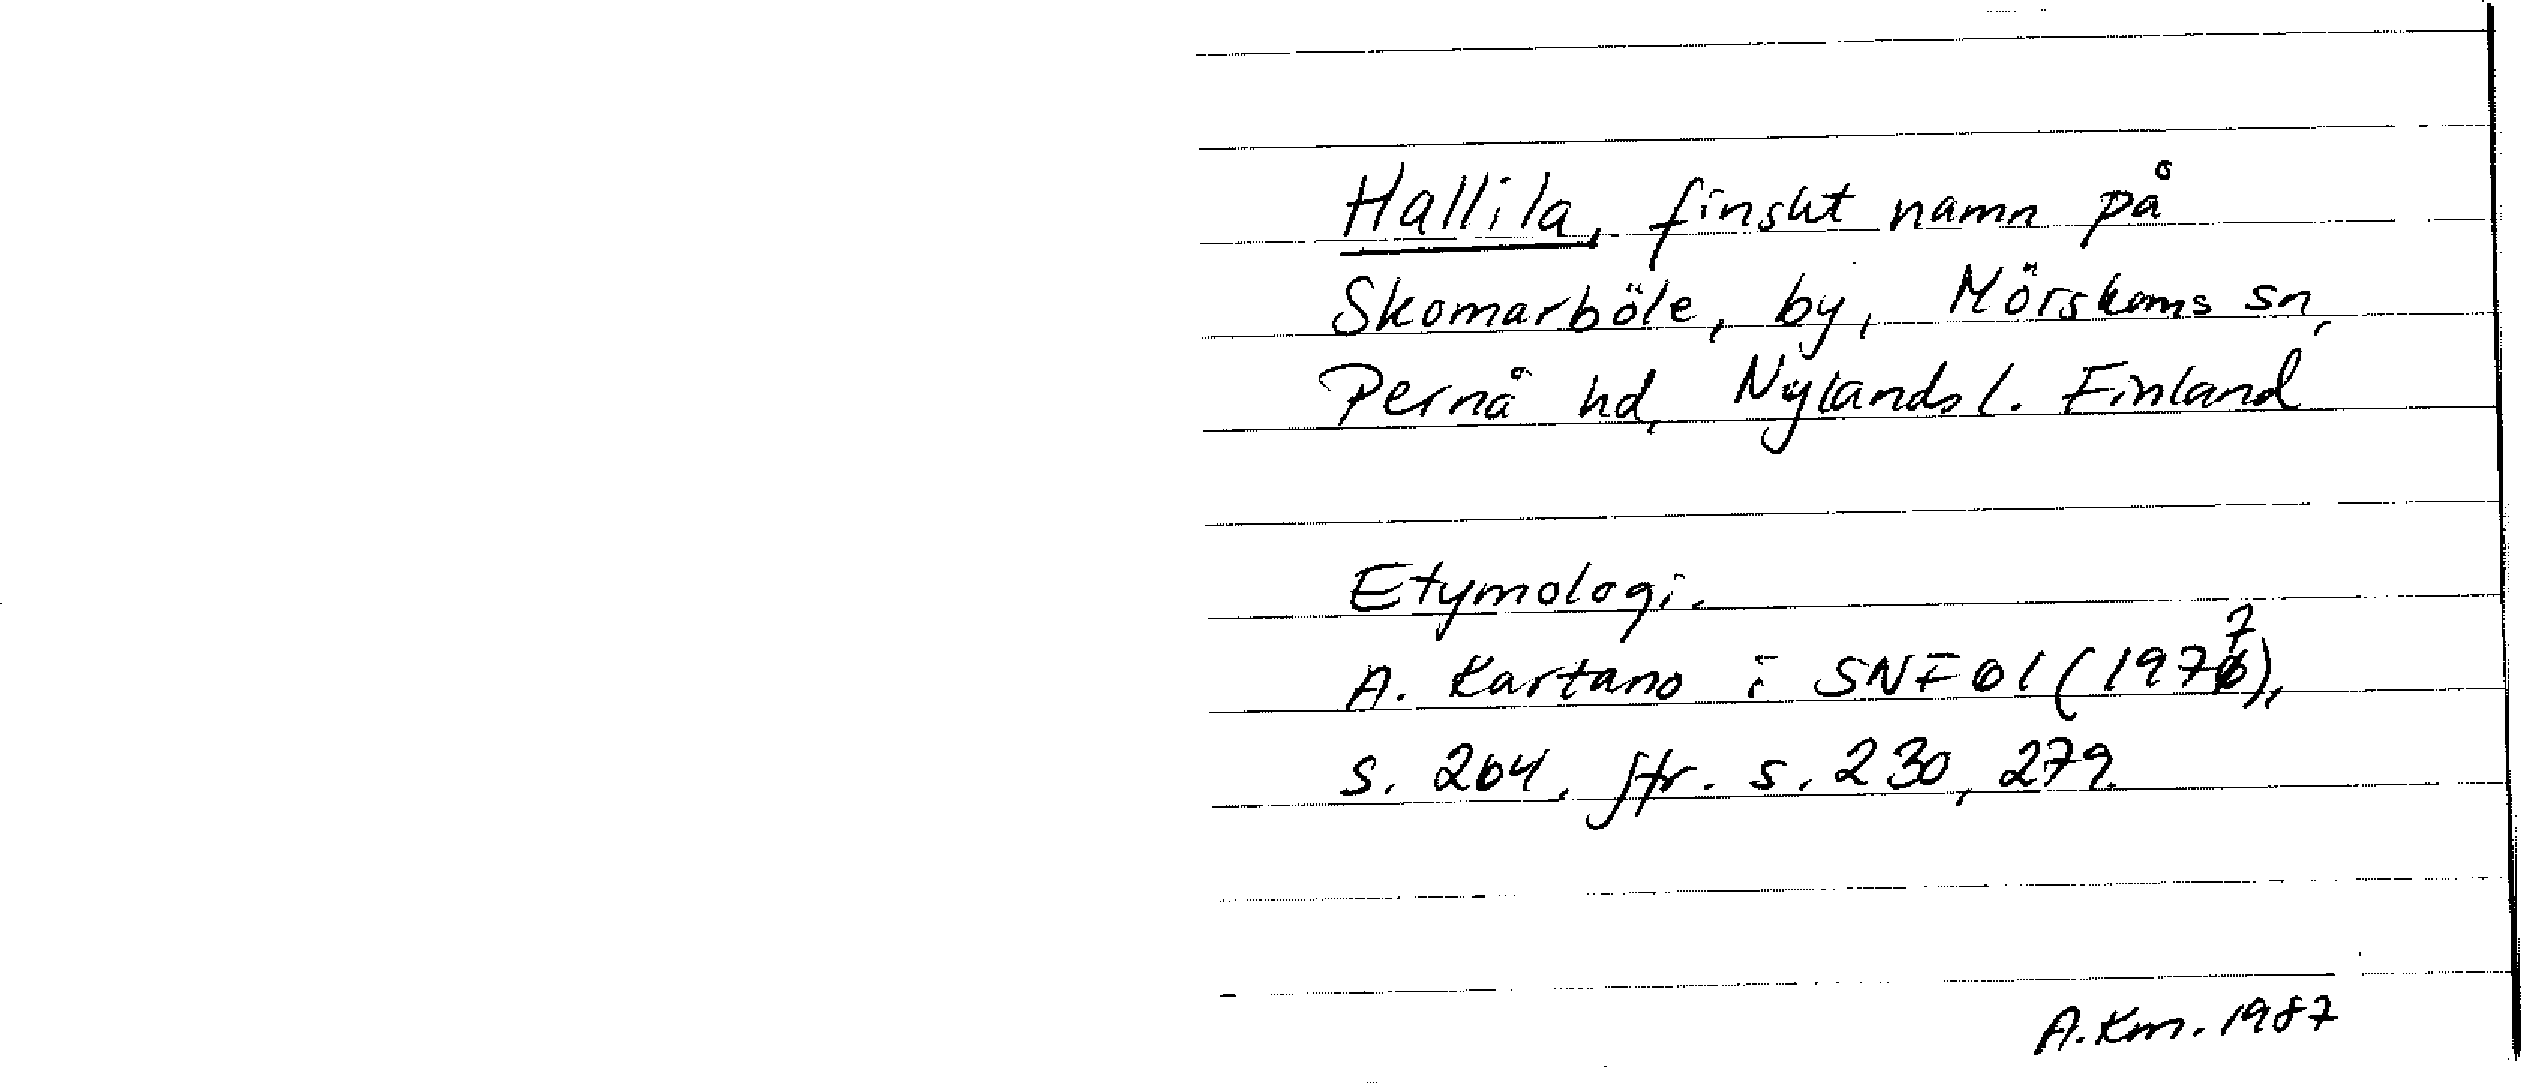 Hallila, finskt namn på
Skomarböle, by, Mörskoms sn,
Pernå hd, Nylands l. Finland
Etymologi.
A. Kartano i SNF 61 (1977),
s. 264, jfr. s. 230, 279.
A.Km. 1987